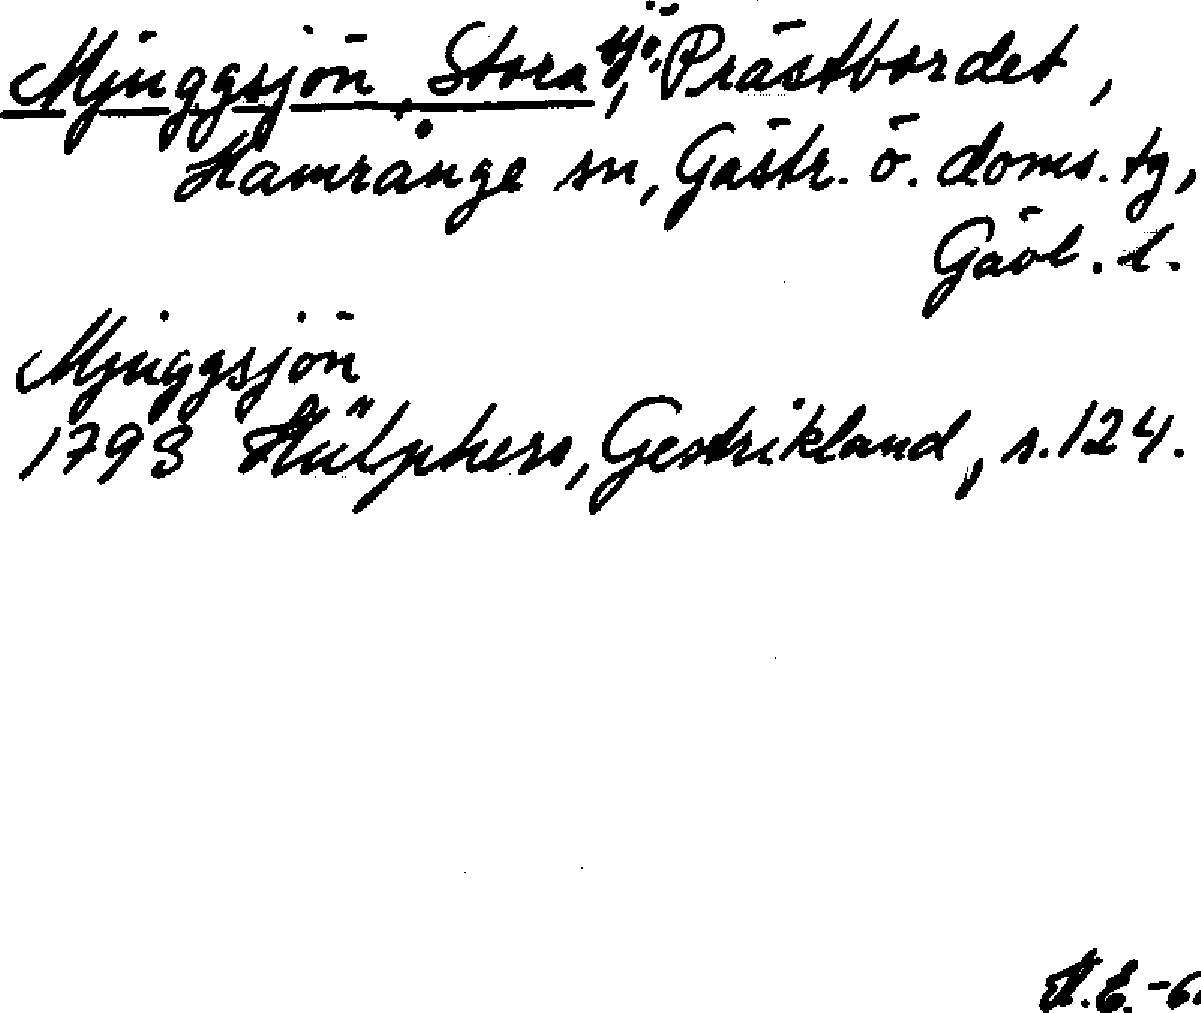 Mjuggsjön, Stora, sjö: Prästbordet,
Hamrånge sn, Gästr. ö. doms. tg,
Gävl. l.
Mjuggsjön
1793 Hülphers, Gestrikland, s. 124.
H.E. -6